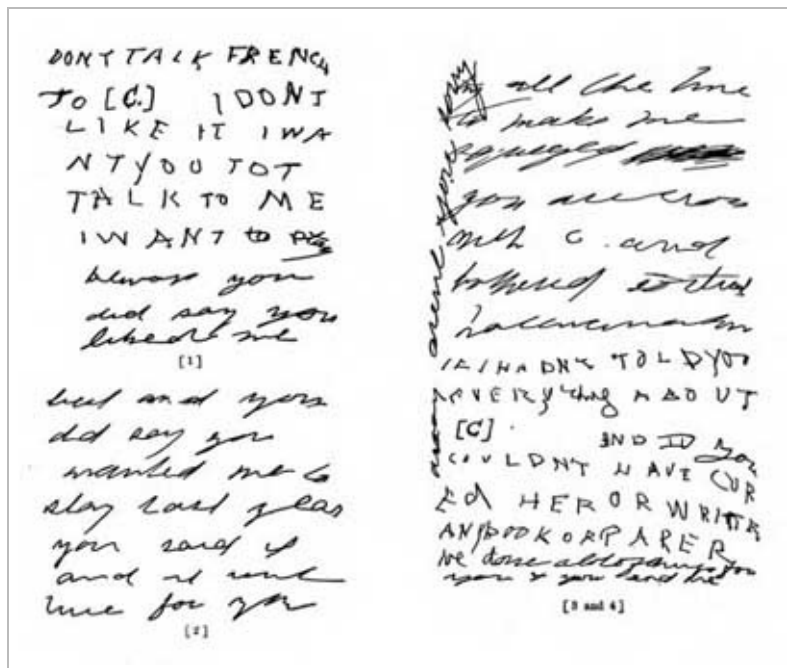 DONT TALK FRENCH
TO [C.] I DONT
LIKE IT I WA
NTYOU TOT
TALK TO ME
I WANT to
because you
did say you
liked me
[1]
best and you
did say you
wanted me to
stay last year
you said it
and it
time for you
[2]
all the time
to make me
you are cross
with C. and
bothered
IF I HADNT TOLD YOU
EVERYthing ABOUT
[C] AND ID you
COULDNT HAVE CUR
ED HER OR WRITTR
ANYBOOK OR PAPER
Ive done
you & you and he
[3 and 4]
arent you sorry